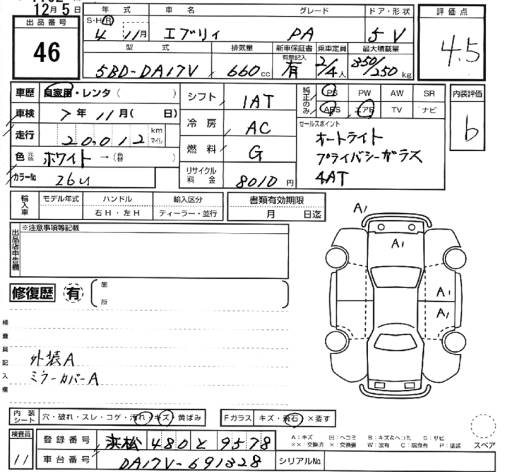 12月5日
出品番号
46
S・H・R
年 式
4年 11月
車 名
エブリィ
グレード
PA
ドア・形状
5V
評価点
4.5
型 式
5BD-DA17V
排気量
660cc
新車保証書
有
乗車定員
2/4人
最大積載量
350/250kg
車歴 自家用・レンタ( )
車検 7年 11月( 日)
走行 20,012 km マイル
色 ホワイト→( )
カラーNo. 26U
シフト 1AT
冷房 AC
燃料 G
リサイクル料金 8010円
純正のみ
PS PW AW SR
ABS エアB TV ナビ
セールスポイント
オートライト
プライバシーガラス
4AT
内装評価
b
輸入車
モデル年式
ハンドル
右H・左H
輸入区分
ディーラー・並行
書類有効期限
月 日迄
※注意事項等記載
修復歴 有
箇所
検査員記入欄
外装A
ミラーカバーA
A1
A1
A1
A1
内装シート
穴・破れ・スレ・コゲ・汚れ・キズ・黄ばみ
Fガラス キズ・飛石・×要す
スペア
検査員
11
登録番号 浜松 480 と 9578
車台番号 DA17V-691328
シリアルNo.
A:キズ